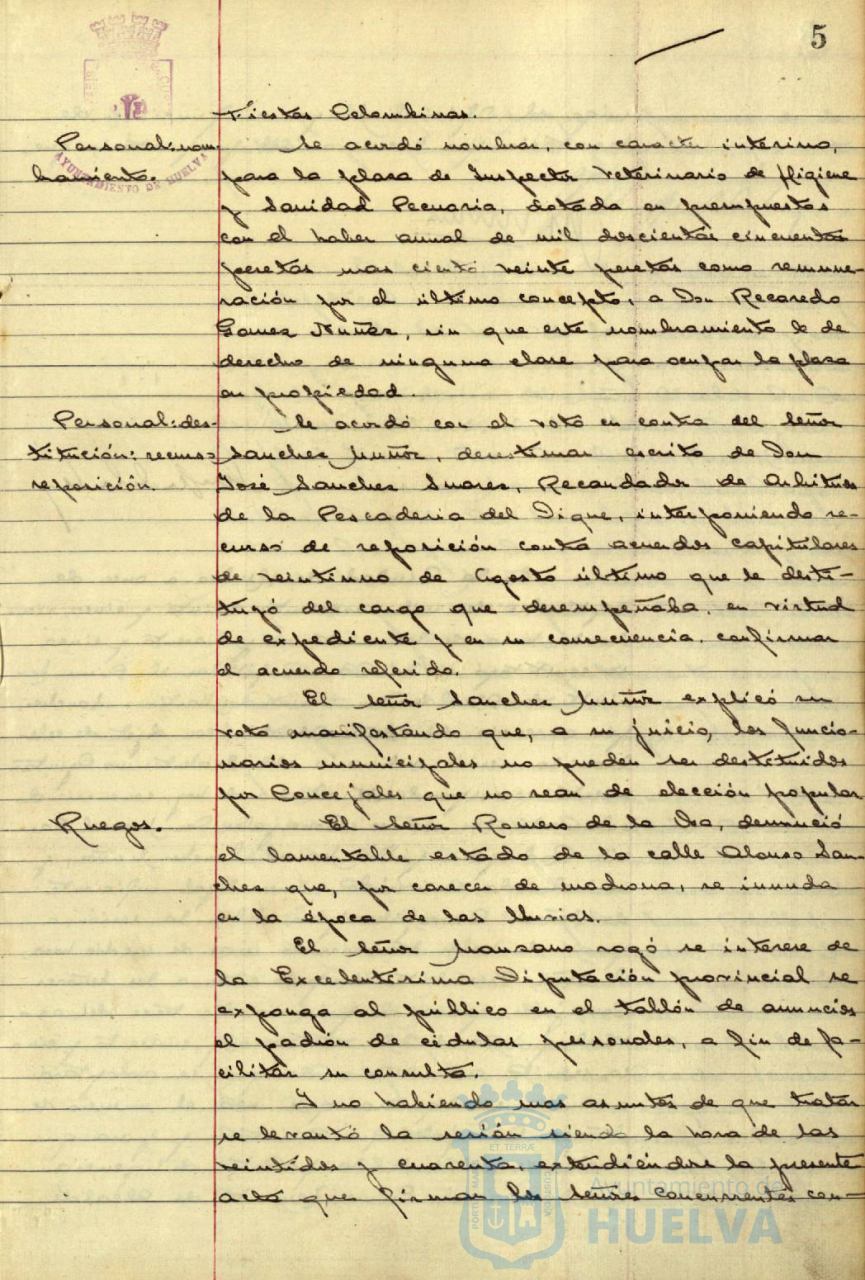 5
Fiestas Colombinas.
Personal: nom-
bramiento.
AYUNTAMIENTO DE HUELVA
Se acordó nombrar, con caracter interino,
para la plaza de Inspector Veterinario de Higiene
y Sanidad Pecuaria, dotada en presupuestos
con el haber anual de mil doscientas cincuenta
pesetas mas ciento veinte pesetas como remune-
ración por el último concepto, a Don Recaredo
Gomez Nuñez, sin que este nombramiento le de
derecho de ninguna clase para ocupar la plaza
en propiedad.
Personal: des-
titución: recurso
reposición.
Se acordó con el voto en contra del Señor
Sanchez Muñoz, desestimar escrito de Don
José Sanchez Suarez, Recaudador de Arbitrios
de la Pescaderia del Dique, interponiendo re-
curso de reposición contra acuerdos capitulares
de veintiuno de Agosto último que le desti-
tuyó del cargo que desempeñaba, en virtud
de expediente y en su consecuencia, confirmar
el acuerdo referido.
El Señor Sanchez Muñoz explicó su
voto manifestando que, a su juicio, los funcio-
narios municipales no pueden ser destituidos
por Concejales que no sean de elección popular
Ruegos.
El Señor Romero de la Osa, denunció
el lamentable estado de la calle Alonso San-
chez que, por carecer de madrona, se inunda
en la época de las lluvias.
El Señor Manzano rogó se interese de
la Excelentísima Diputación provincial se
exponga al público en el tablón de anuncios
el padrón de cédulas personales, a fin de fa-
cilitar su consulta.
Y no habiendo mas asuntos de que tratar
se levantó la sesión siendo la hora de las
veintidos y cuarenta, extendiéndose la presente
acta que firman los Señores concurrentes con-
Ayuntamiento de
HUELVA